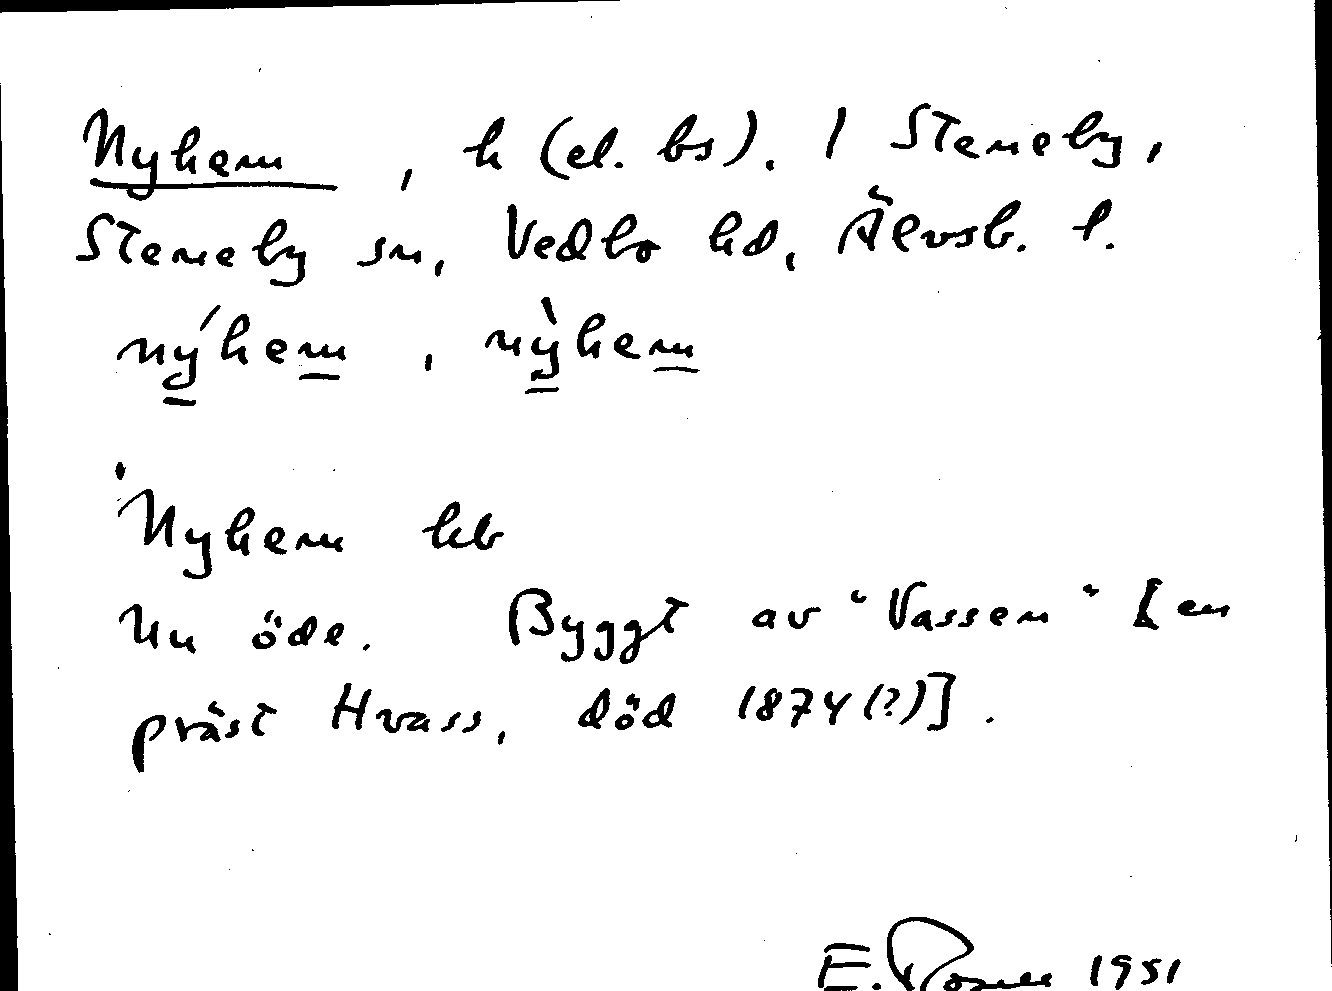 Nyhem, h (el. bs). / Steneby,
Steneby sn, Vedbo hd, Älvsb. l.
nýhem, nỳhem
Nyhem hb
Nu öde. Byggt av "Vassen" [en
präst Hvass, död 1874(?)].
E. 1951